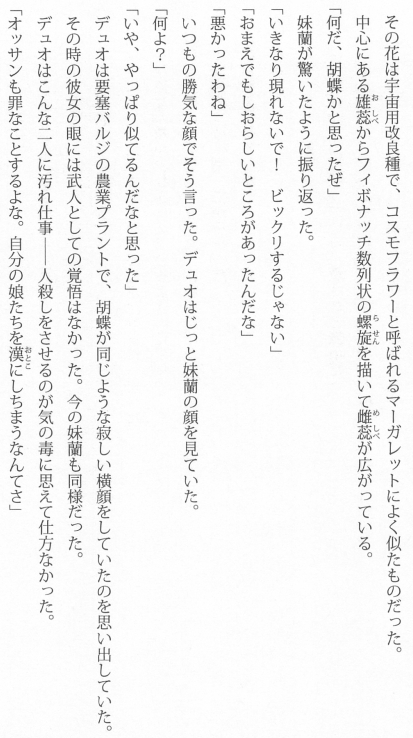 その花は宇宙用改良種で、コスモフラワーと呼ばれるマーガレットによく似たものだった。
中心にある雄蕊からフィボナッチ数列状の螺旋を描いて雌蕊が広がっている。
「何だ、胡蝶かと思ったぜ」
妹蘭が驚いたように振り返った。
「いきなり現れないで！　ビックリするじゃない」
「おまえでもしおらしいところがあったんだな」
「悪かったわね」
いつもの勝気な顔でそう言った。デュオはじっと妹蘭の顔を見ていた。
「何よ？」
「いや、やっぱり似てるんだなと思った」
デュオは要塞バルジの農業プラントで、胡蝶が同じような寂しい横顔をしていたのを思い出していた。
その時の彼女の眼には武人としての覚悟はなかった。今の妹蘭も同様だった。
デュオはこんな二人に汚れ仕事――人殺しをさせるのが気の毒に思えて仕方なかった。
「オッサンも罪なことするよな。自分の娘たちを漢にしちまうなんてさ」